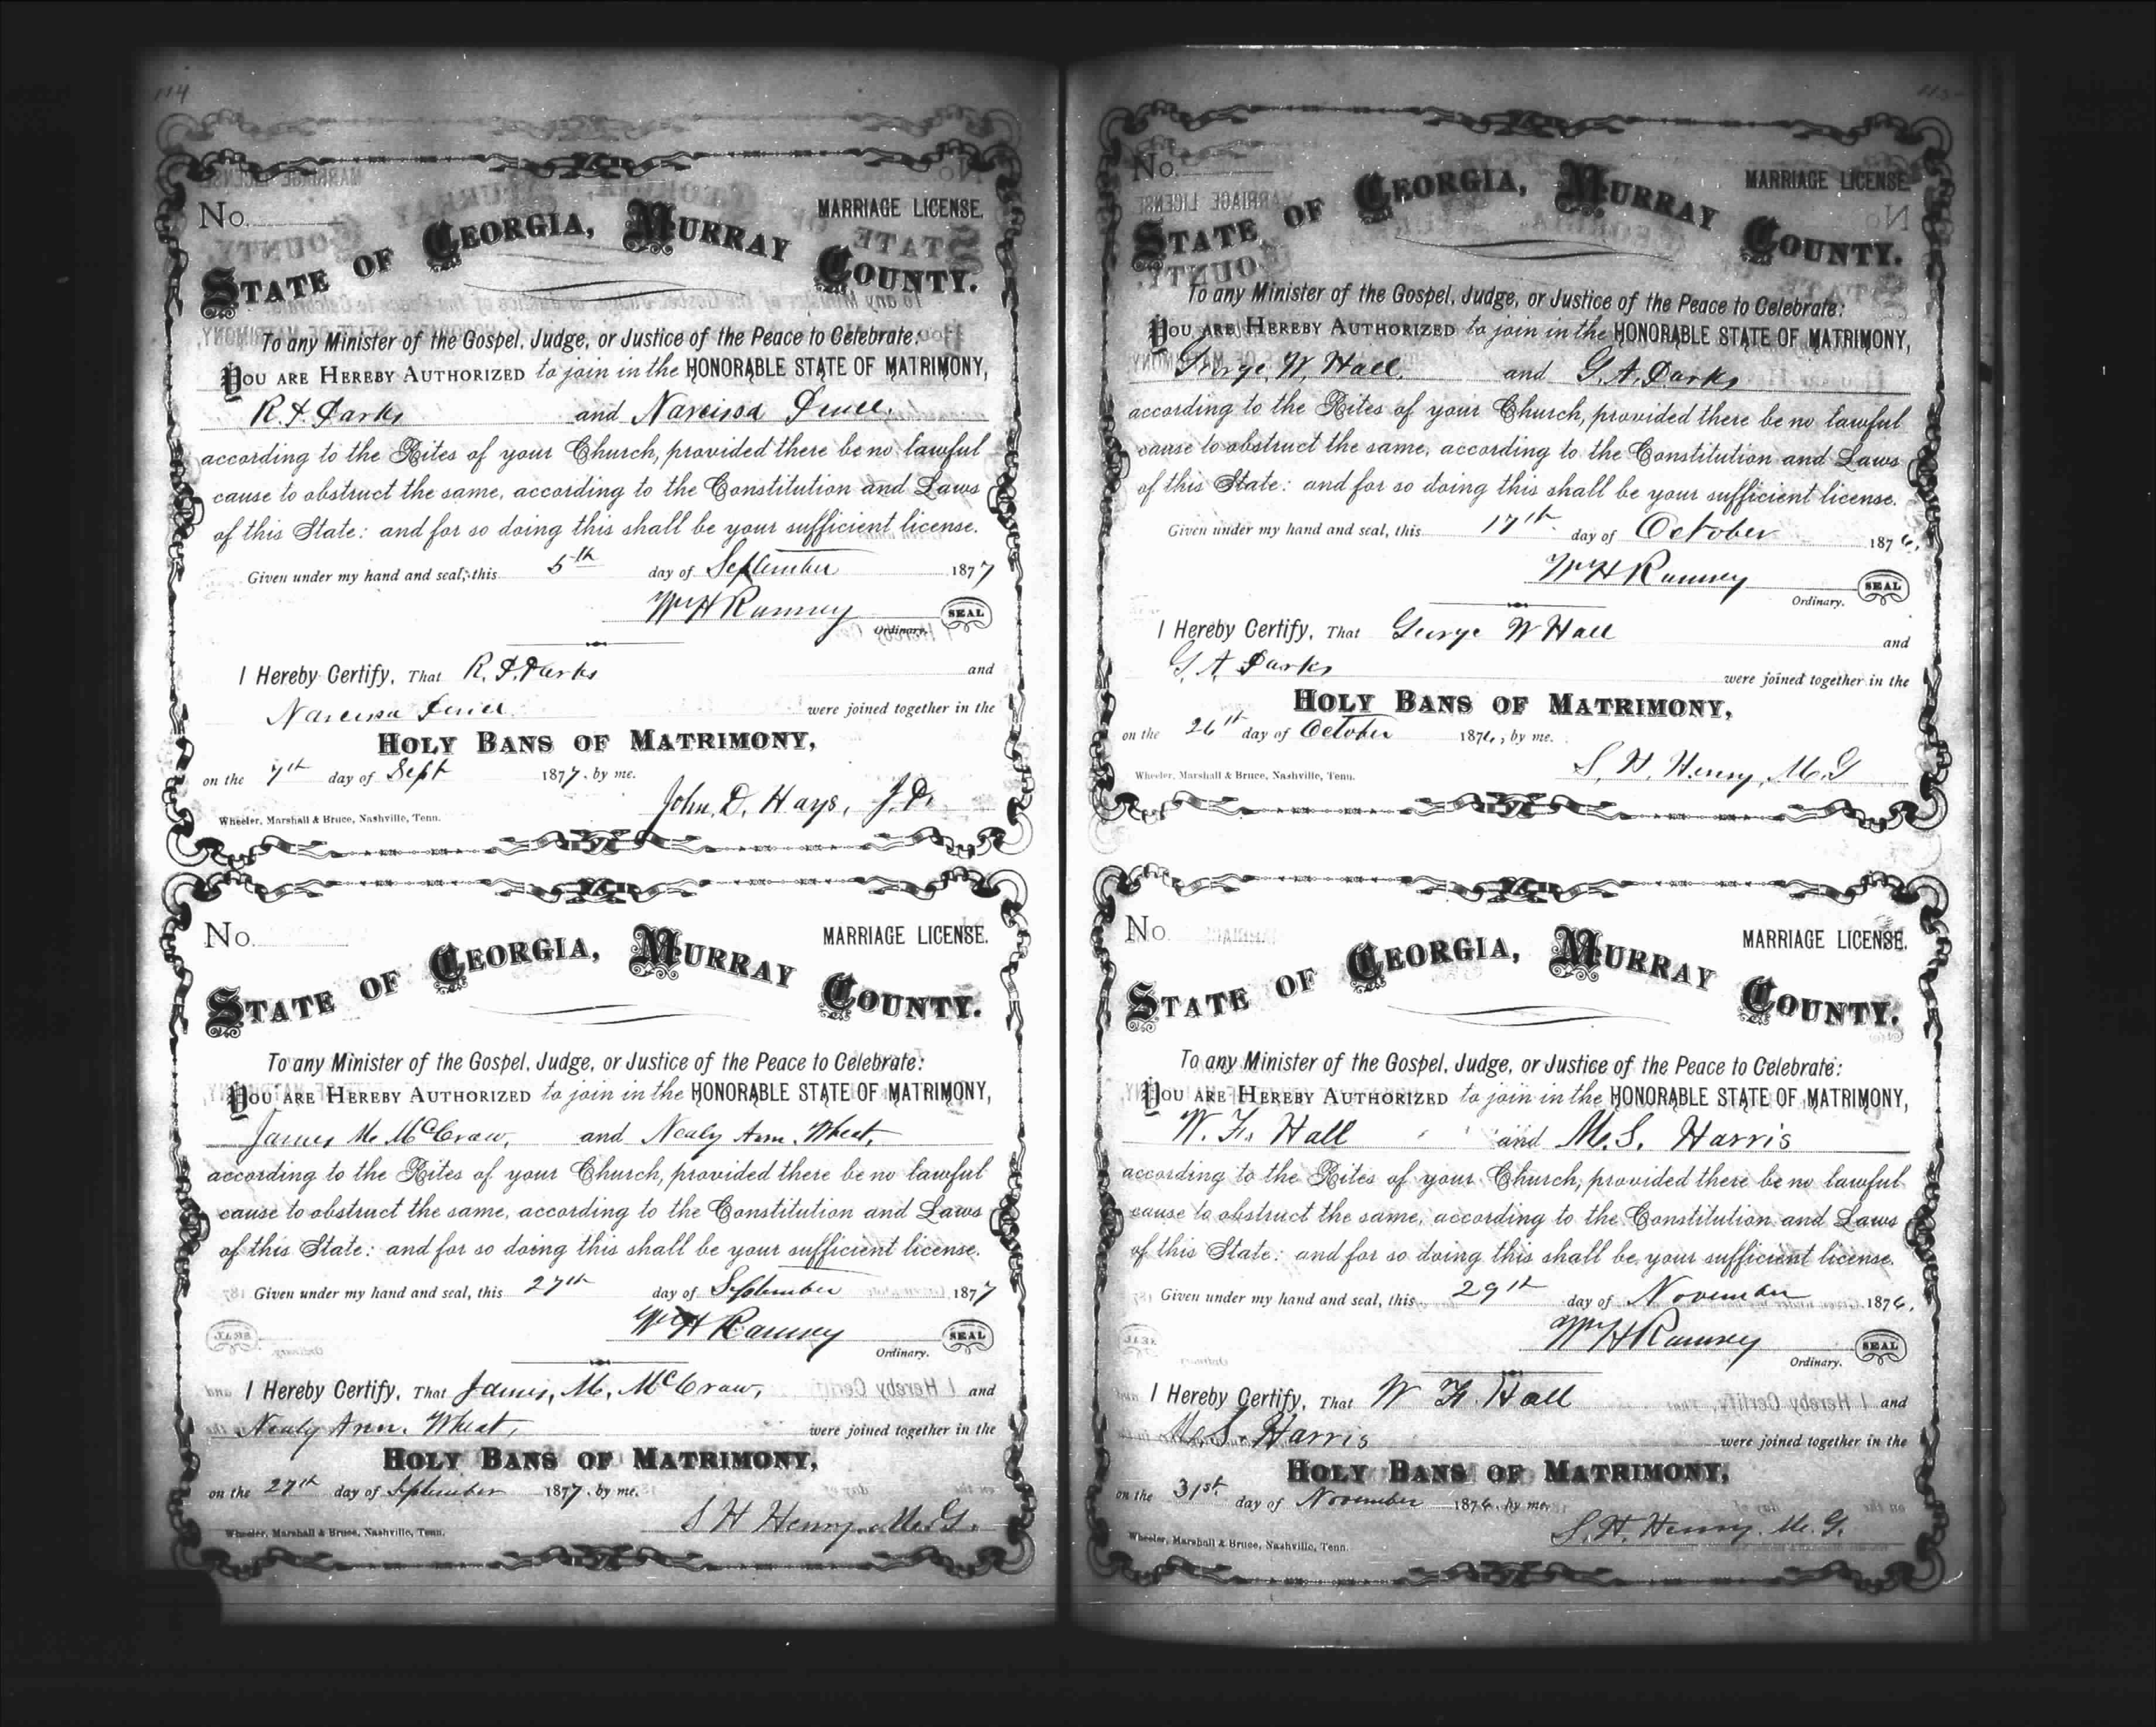 114
No.
MARRIAGE LICENSE.
STATE OF GEORGIA, MURRAY COUNTY.
To any Minister of the Gospel, Judge, or Justice of the Peace to Celebrate:
YOU ARE HEREBY AUTHORIZED to join in the HONORABLE STATE OF MATRIMONY,
Parks and Narcissa
according to the Rites of your Church, provided there be no lawful
cause to obstruct the same, according to the Constitution and Laws
of this State: and for so doing this shall be your sufficient license.
Given under my hand and seal, this 5th day of September 1877
Wm H Ramsey SEAL
Ordinary.
I Hereby Certify, That Parks and
Narcissa were joined together in the
HOLY BANS OF MATRIMONY,
on the 7th day of Sept 1877, by me.
John D. Hays, J.P.
Wheeler, Marshall & Bruce, Nashville, Tenn.
No.
MARRIAGE LICENSE.
STATE OF GEORGIA, MURRAY COUNTY.
To any Minister of the Gospel, Judge, or Justice of the Peace to Celebrate:
YOU ARE HEREBY AUTHORIZED to join in the HONORABLE STATE OF MATRIMONY,
James M. McCraw, and Nealy Ann. Wheat,
according to the Rites of your Church, provided there be no lawful
cause to obstruct the same, according to the Constitution and Laws
of this State: and for so doing this shall be your sufficient license.
Given under my hand and seal, this 27th day of September 1877
Wm H Ramsey SEAL
Ordinary.
I Hereby Certify, That James, M, McCraw, and
Nealy Ann. Wheat, were joined together in the
HOLY BANS OF MATRIMONY,
on the 27th day of September 1877, by me.
S H Henry, M.G.
Wheeler, Marshall & Bruce, Nashville, Tenn.
115
No.
MARRIAGE LICENSE.
STATE OF GEORGIA, MURRAY COUNTY.
To any Minister of the Gospel, Judge, or Justice of the Peace to Celebrate:
YOU ARE HEREBY AUTHORIZED to join in the HONORABLE STATE OF MATRIMONY,
George W. Hall, and G. A. Parks
according to the Rites of your Church, provided there be no lawful
cause to obstruct the same, according to the Constitution and Laws
of this State: and for so doing this shall be your sufficient license.
Given under my hand and seal, this 17th day of October 1876,
Wm H Ramsey SEAL
Ordinary.
I Hereby Certify, That George W Hall and
G. A. Parks were joined together in the
HOLY BANS OF MATRIMONY,
on the 26th day of October 1876, by me.
S. H. Henry, M.G
Wheeler, Marshall & Bruce, Nashville, Tenn.
No.
MARRIAGE LICENSE.
STATE OF GEORGIA, MURRAY COUNTY.
To any Minister of the Gospel, Judge, or Justice of the Peace to Celebrate:
YOU ARE HEREBY AUTHORIZED to join in the HONORABLE STATE OF MATRIMONY,
W. F. Hall and M. S. Harris
according to the Rites of your Church, provided there be no lawful
cause to obstruct the same, according to the Constitution and Laws
of this State: and for so doing this shall be your sufficient license.
Given under my hand and seal, this 29th day of November 1876.
Wm H Ramsey SEAL
Ordinary.
I Hereby Certify, That W F. Hall and
M. S. Harris were joined together in the
HOLY BANS OF MATRIMONY,
on the 31st day of November 1876, by me.
S. H. Henry. M. G.
Wheeler, Marshall & Bruce, Nashville, Tenn.